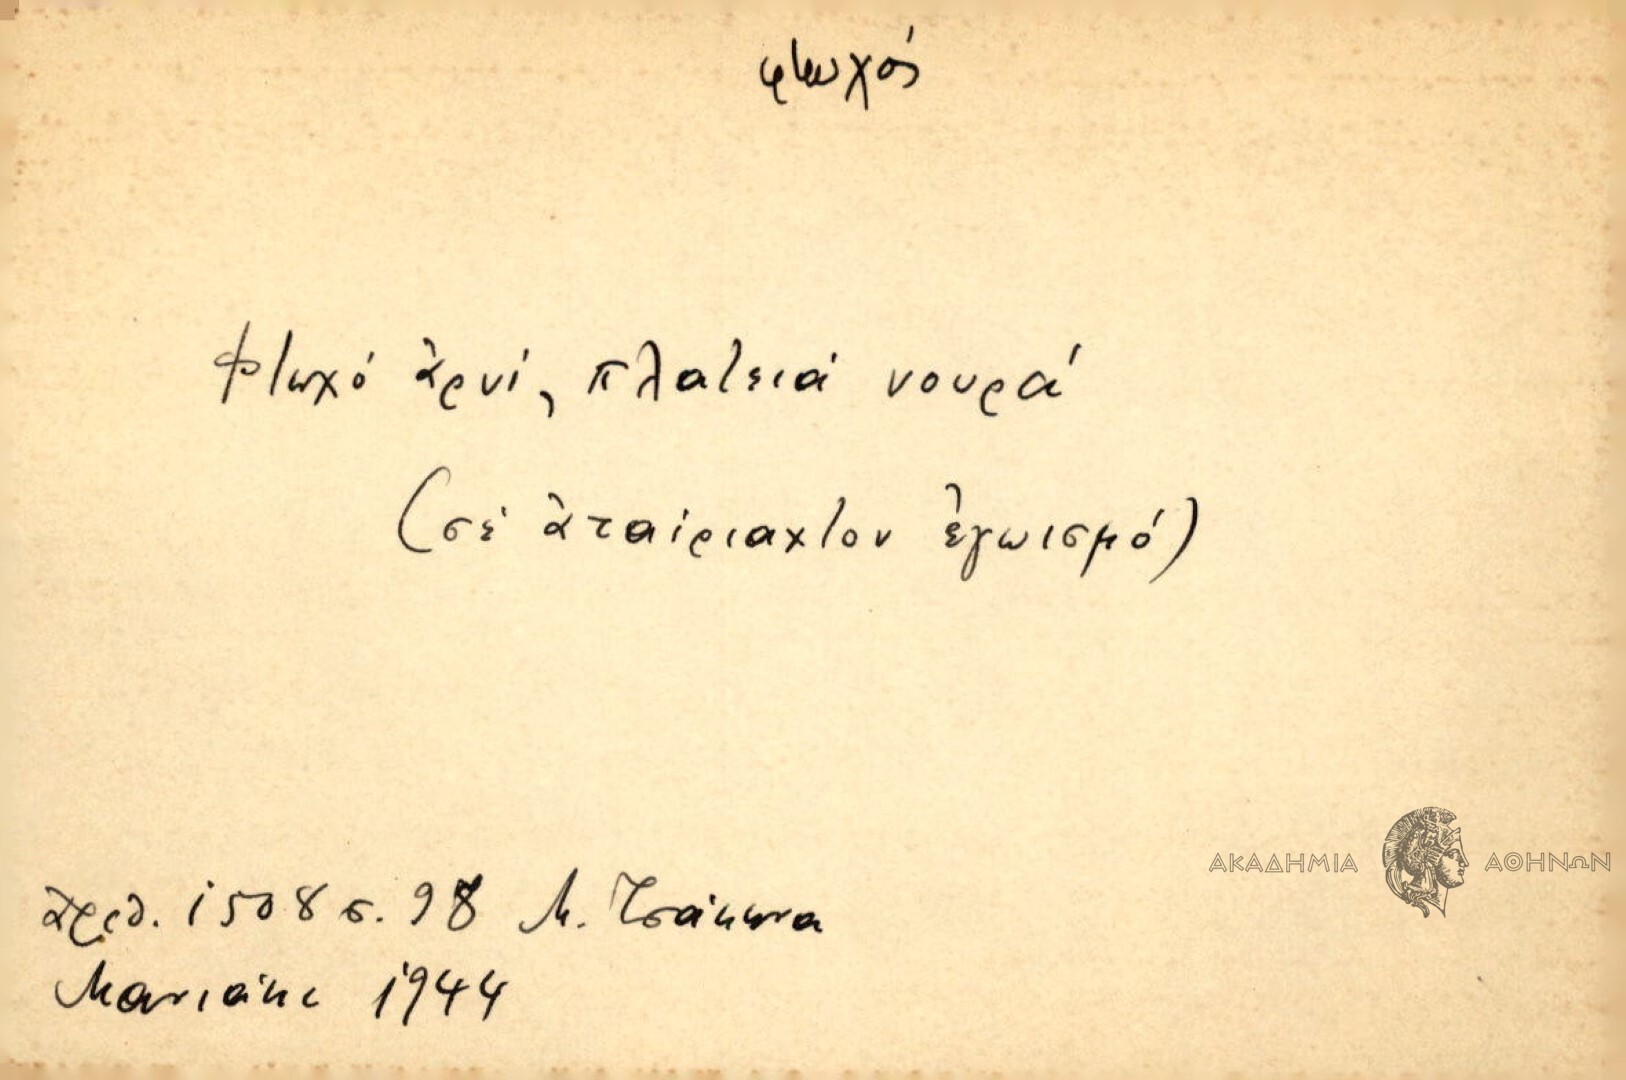 φτωχός
Φτωχό ἀρνί, πλατειά νουρά
(σέ ἀταίριαχτον ἐγωισμό)
ἀριθ. 1508 σ. 98 Μ. Τσάκωνα
Μανιάκι 1944
ΑΚΑΔΗΜΙΑ ΑΘΗΝΩΝ